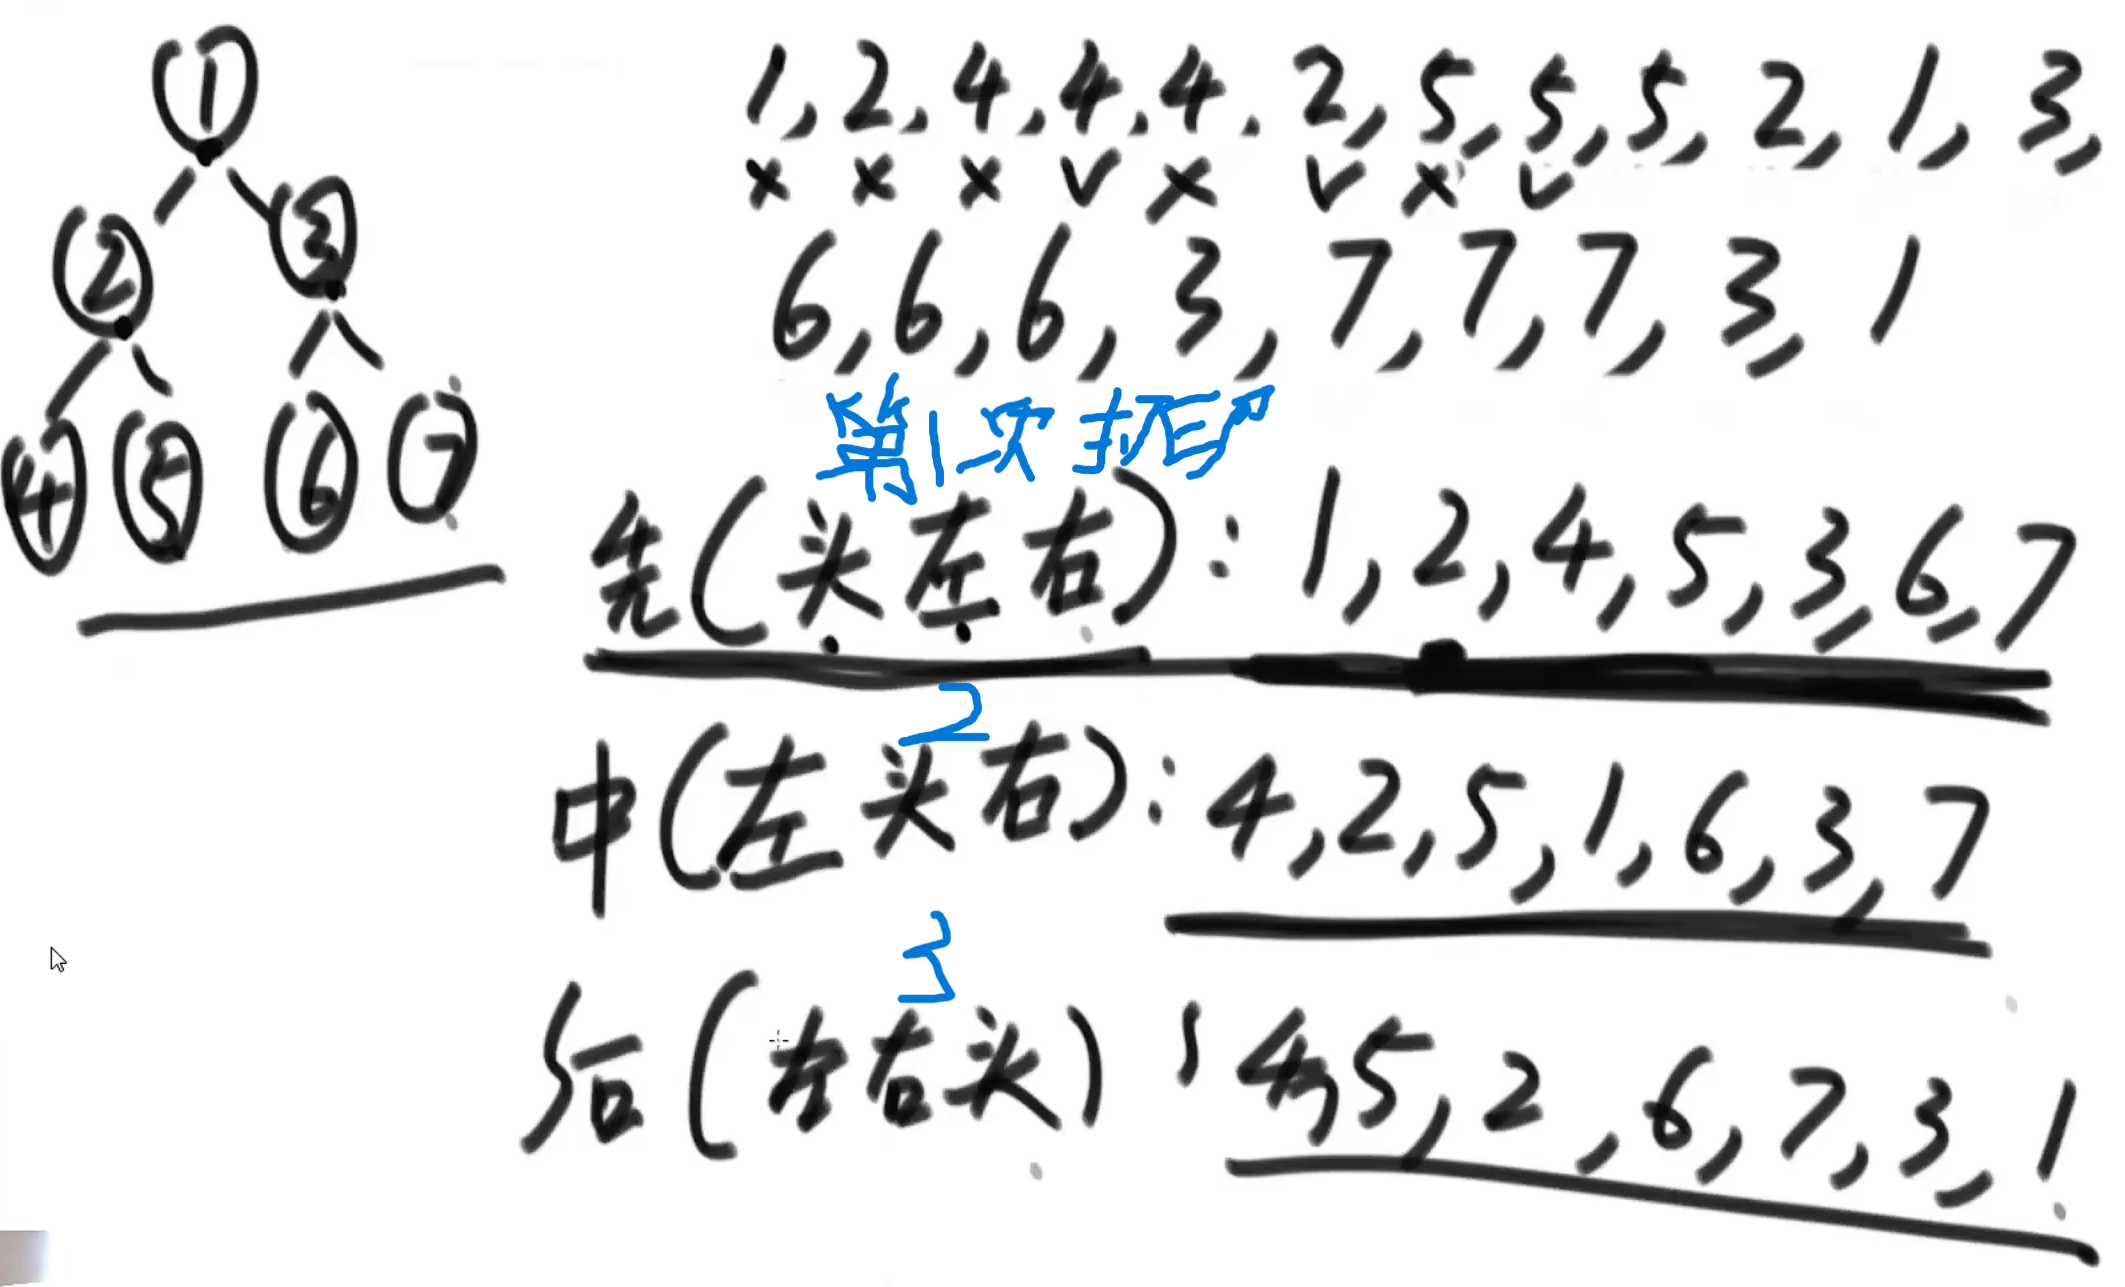 1
2 3
4 5 6 7
1,2,4,4,4,2,5,5,5,2,1,3,
× × × ∨ × ∨ × ∨
6,6,6,3,7,7,7,3,1
第1次打印
先(头左右):1,2,4,5,3,6,7
2
中(左头右):4,2,5,1,6,3,7
3
后(左右头):4,5,2,6,7,3,1